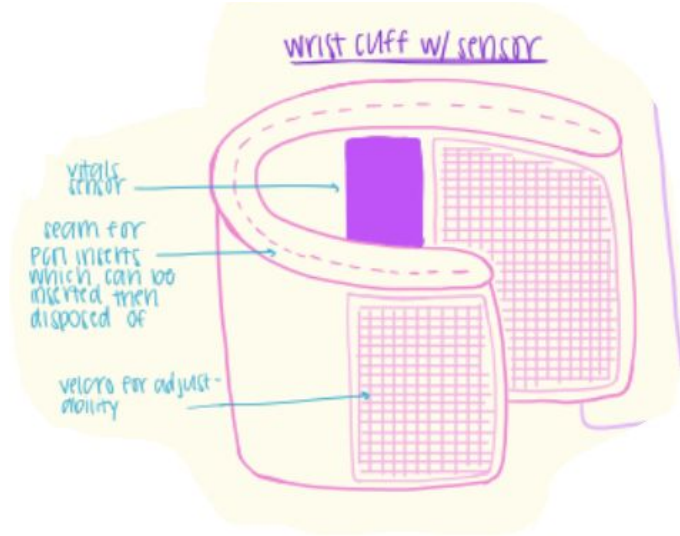 wrist cuff w/ sensor
vitals
sensor
seam for
PCM inserts
which can be
inserted then
disposed of
velcro for adjust-
ability